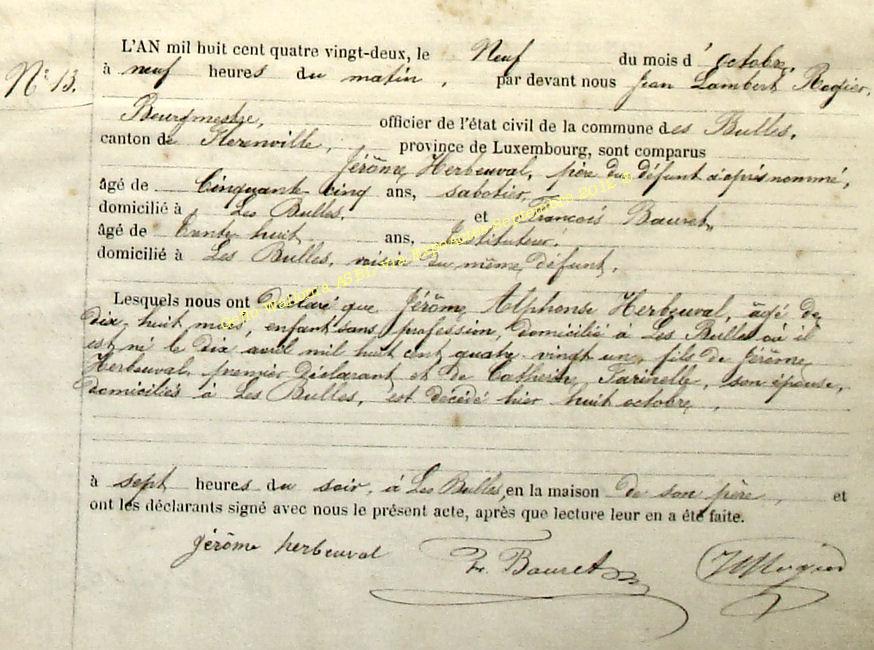 L'AN mil huit cent quatre vingt-deux, le Neuf du mois d'octobre,
N° 13.
à neuf heures du matin, par devant nous Jean Lambert Rogier,
Bourgmestre, officier de l'état civil de la commune des Bulles,
canton de Florenville, province de Luxembourg, sont comparus
Jérôme Herbeuval, père du défunt ci-après nommé,
âgé de Cinquante cinq ans, sabotier,
domicilié à Les Bulles, et François Bauret,
âgé de trente huit ans, Instituteur,
domicilié à Les Bulles, voisin du même défunt,
Lesquels nous ont Déclaré que Jérôme Alphonse Herbeuval, âgé de
dix huit mois, enfant sans profession, domicilié à Les Bulles où il
est né le dix avril mil huit cent quatre-vingt un, fils de Jérôme
Herbeuval, premier déclarant et de Catherine Farinelle, son épouse,
domiciliés à Les Bulles, est décédé hier huit octobre,
à sept heures du soir, à Les Bulles, en la maison de son père, et
ont les déclarants signé avec nous le présent acte, après que lecture leur en a été faite.
jérôme herbeuval F. Bauret JLRogier